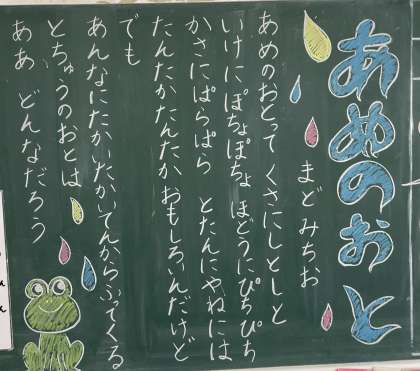 あめのおと
まどみちお
あめのおとって くさにしとしと
いけにぽちょぽちょ ほどうにぴちぴち
かさにぱらぱら とたんにやねには
たんたかたんたか おもしろいんだけど
でも
あんなにたかいたかいてんからふってくる
とちゅうのおとは
ああ どんなだろう